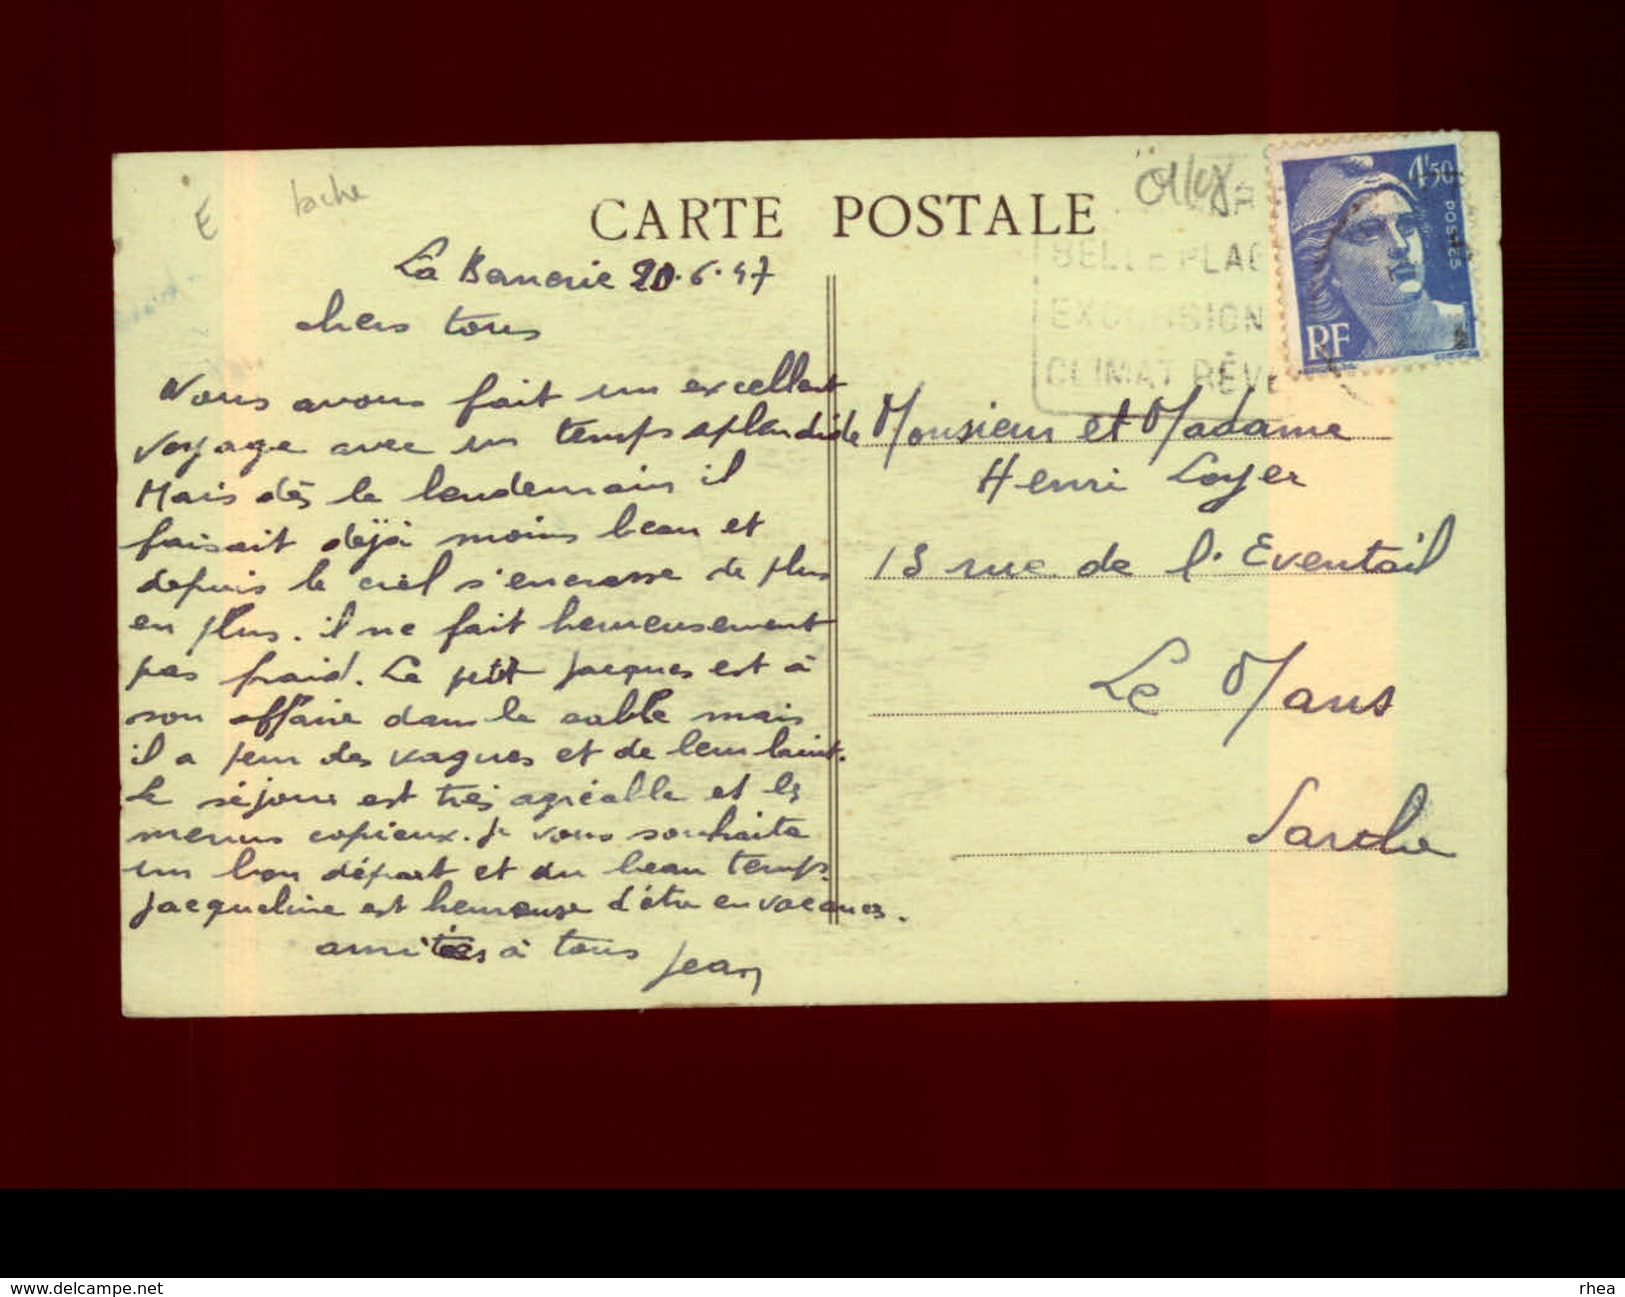 E
tache
CARTE POSTALE
BELLE PLAG
EXCURSION
CLIMAT RÊVE
4F50
POSTES
RF
La Bernerie 20.6.47
chers tous
Nous avons fait un excellent
voyage avec un temps splendide
Mais dès le lendemain il
faisait déjà moins beau et
depuis le ciel s'encrasse de plus
en plus. il ne fait heureusement
pas froid. Le petit Jacques est à
son affaire dans le sable mais
il a peur des vagues et de leur bruit.
Le séjour est très agréable et les
menus copieux. Je vous souhaite
un bon départ et du beau temps.
Jacqueline est heureuse d'être en vacances.
amitiés à tous Jean
Monsieur et Madame
Henri Loyer
13 rue de l'Eventail
Le Mans
Sarthe
www.delcampe.net
rhea